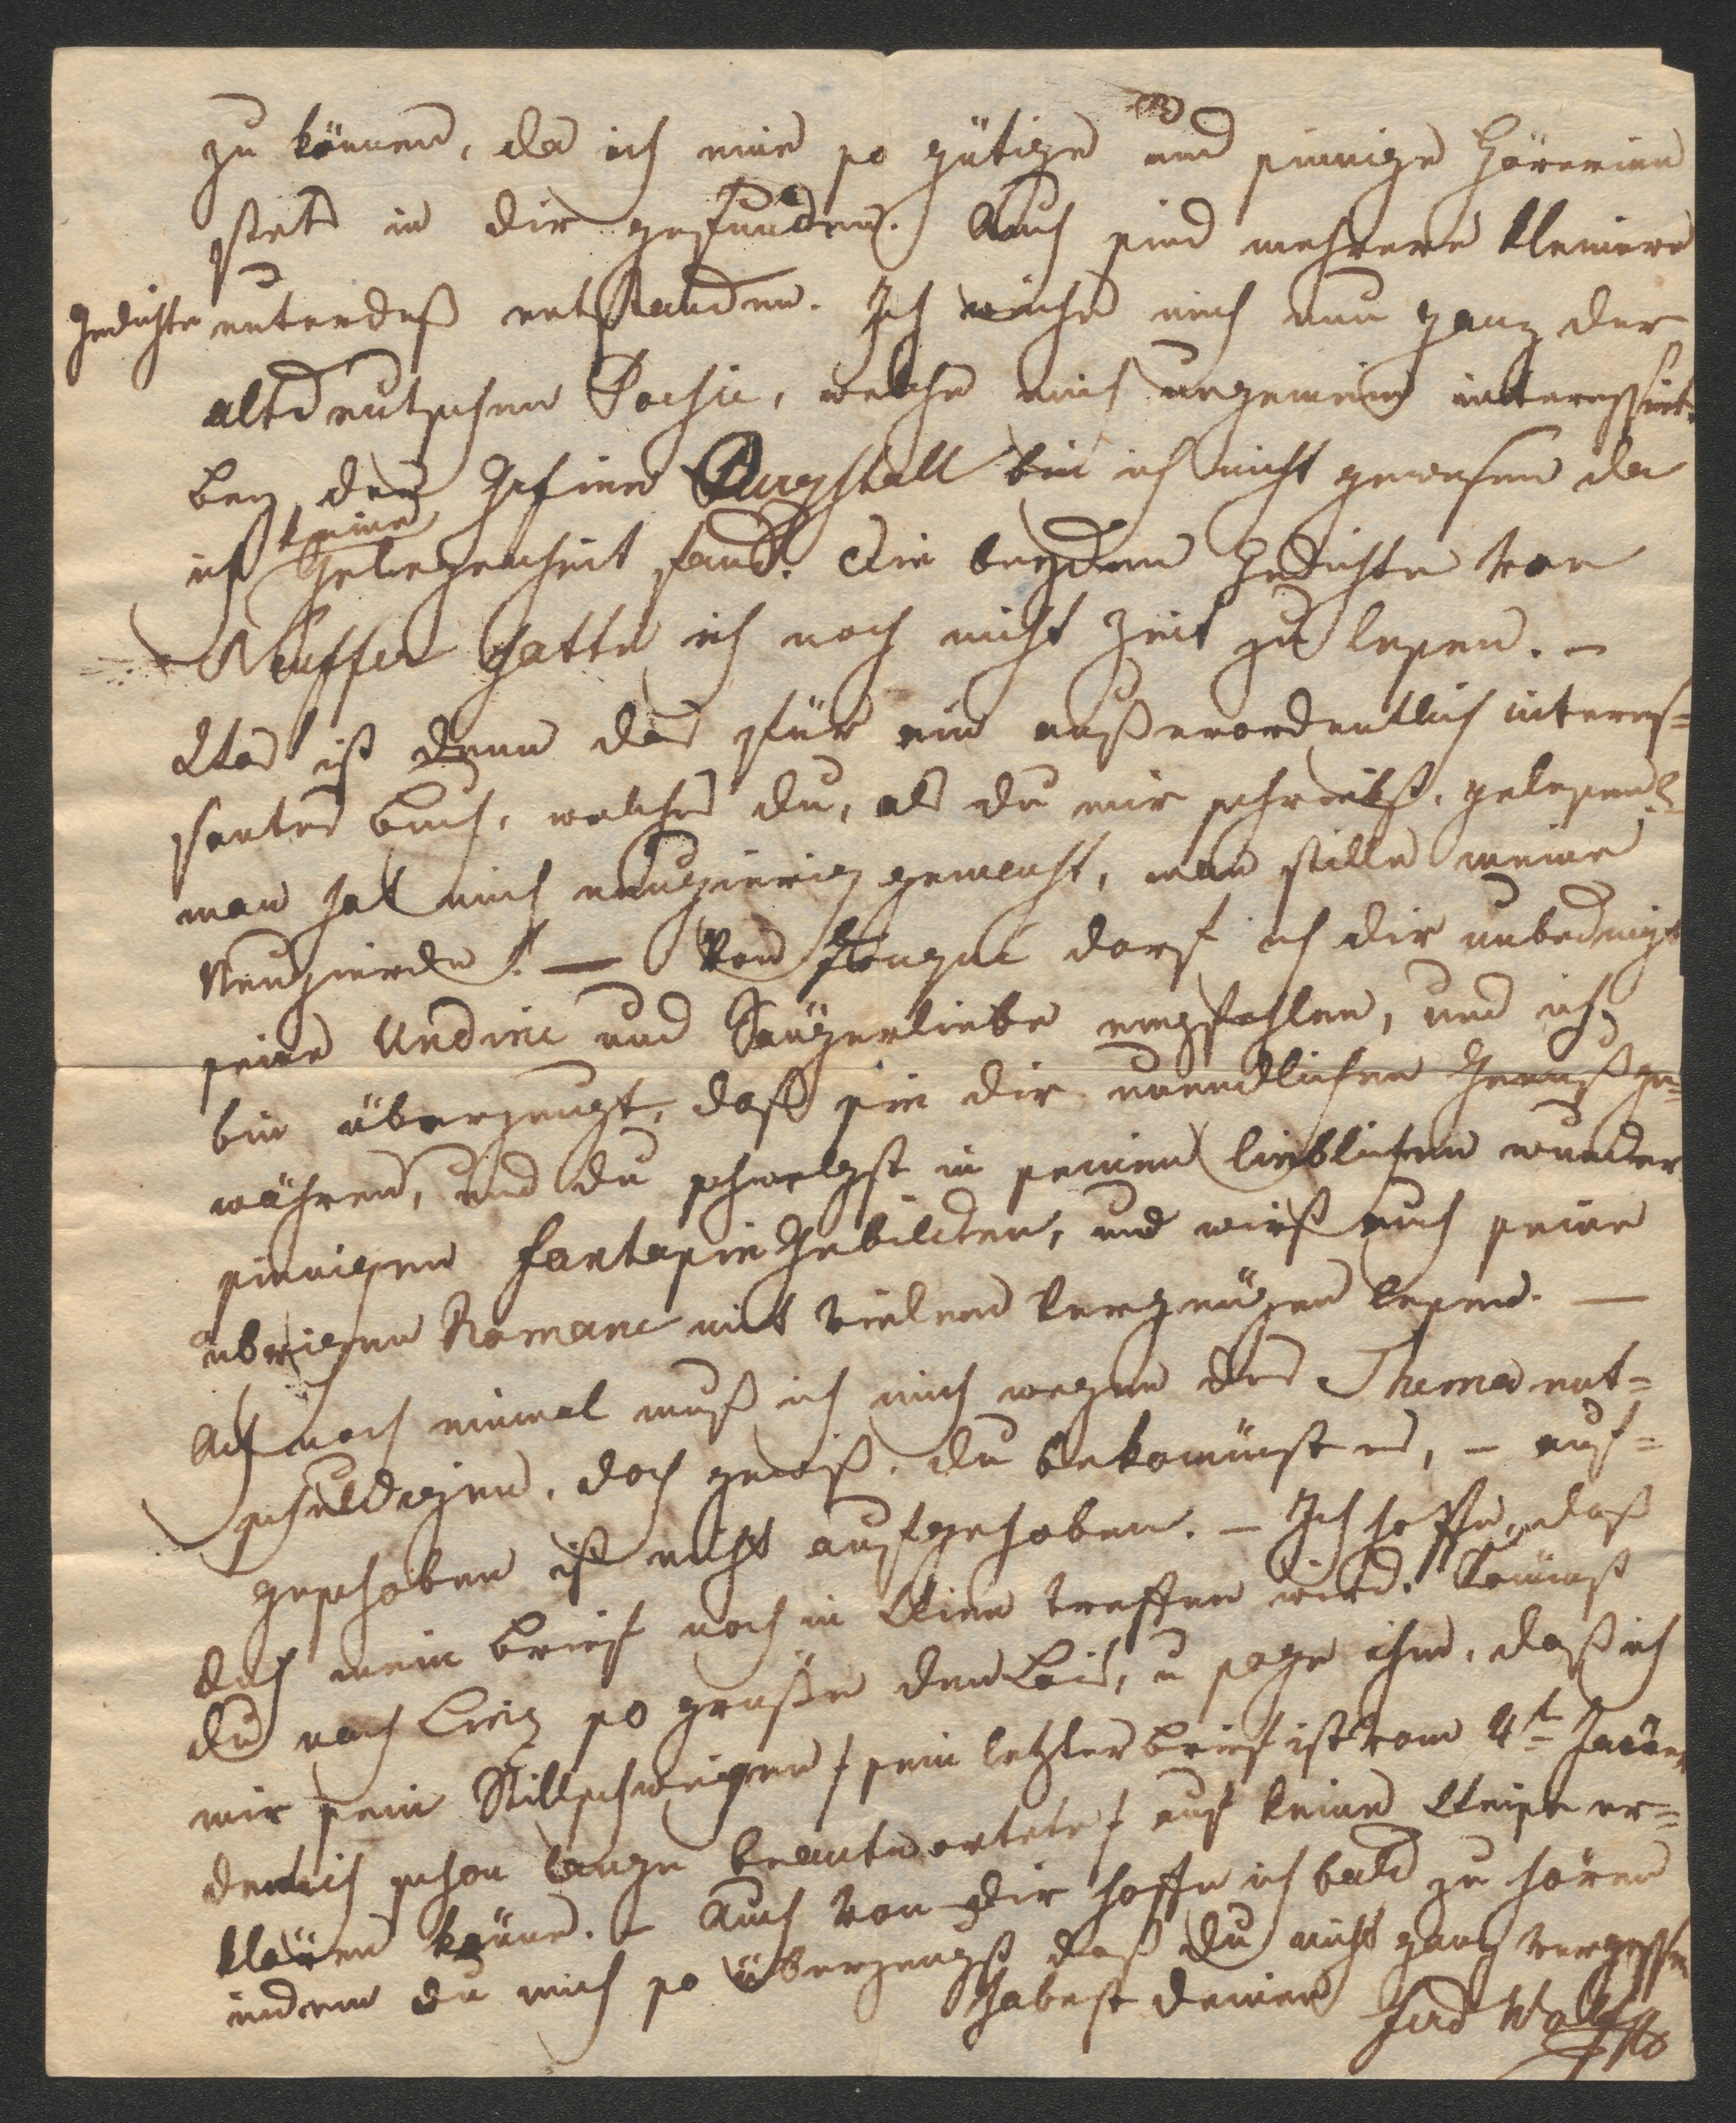 zu können, da ich eine so gütige und sinnige Hörerinn
stets in dir gefunden. Auch sind mehrere kleinere
Gedichte unterdeß entstanden. Ich weihe mich nun ganz der
altdeutschen Poesie, welche mich ungemein interessirt.
Bey der Gräfinn Purgstall bin ich nicht gewesen da
ich keine Gelegenheit fand. Die beyden Gedichte von
Neuffer hatte ich noch nicht Zeit zu lesen. –
Was ist denn das für ein außerordentlich interes=
santes Buch, welches du, als du mir schreibst, gelesen?
man hat mich neugierig gemacht, man stille meine
Neugierde! — Von Fouqué darf ich dir unbedingt
seine Undine und Sängerliebe empfehlen, und ich
bin überzeugt, daß sie dir unendlichen Genuß ge=
währen, und du schwelgst in seinen lieblichen wunder
sinnigen Fantasie Gebilden, und wirst auch seine
übrigen Romane mit vielem Vergnügen lesen. —
Ach noch einmal muß ich mich wegen des Thema ent=
schuldigen, doch gewiß, du bekommst es, – auf=
geschoben ist nicht aufgehoben. – Ich hoffe, daß
dich mein Brief noch in Wien treffen wird. Kommst
du nach Linz so grüße den , u sage ihm, daß ich
mir sein Stillschweigen / sein letzter Brief ist vom 4t Jäner
den ich schon lange beantwortete / auf keine Weise er=
klären könne. – Auch von dir hoffe ich bald zu hören
indem du mich so überzeugst daß du nicht ganz vergessen
habest deinen Ferd Wolf